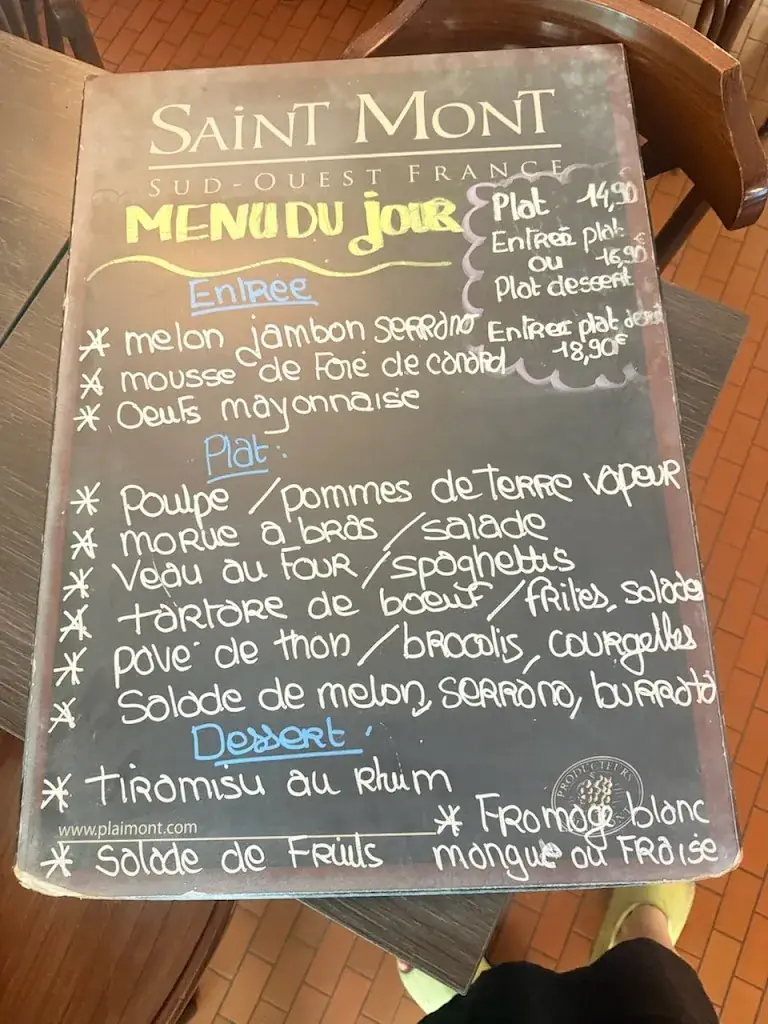 SAINT MONT
SUD-OUEST FRANCE
MENU DU JOUR
Plat 14,90
Entrée plat
ou 16,90€
Plat dessert
Entrée plat dessert
18,90€
Entrée
* melon jambon serrano
* mousse de Foie de canard
* Oeufs mayonnaise
Plat:
* Poulpe / pommes de terre vapeur
* morue a bras / salade
* Veau au four / spaghettis
* tartare de boeuf / frites, salade
* pavé de thon / brocolis, courgettes
* Salade de melon, serrano, burrata
Dessert:
* Tiramisu au Rhum
PRODUCTEURS
www.plaimont.com
* Fromage blanc
mangue ou Fraise
* Salade de Fruits